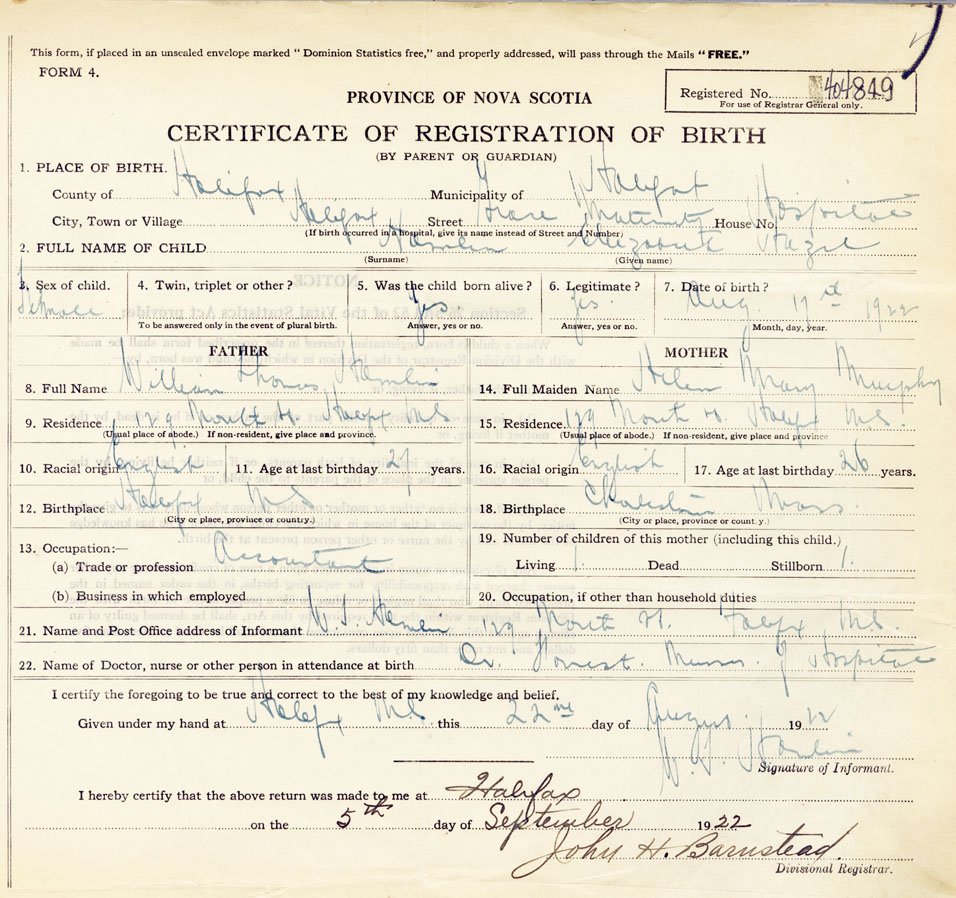 This form, if placed in an unsealed envelope marked "Dominion Statistics free," and properly addressed, will pass through the Mails "FREE."
FORM 4.
Registered No. 404819
For use of Registrar General only.
PROVINCE OF NOVA SCOTIA
CERTIFICATE OF REGISTRATION OF BIRTH
(BY PARENT OR GUARDIAN)
1. PLACE OF BIRTH.
County of Halifax Municipality of Halifax
City, Town or Village Halifax Street Grace Maternity House No. Hospital
(If birth occurred in a hospital, give its name instead of Street and Number)
2. FULL NAME OF CHILD Hamlin Elizabeth Hazel
(Surname) (Given name)
3. Sex of child. Female 4. Twin, triplet or other? 5. Was the child born alive? Yes 6. Legitimate? Yes. 7. Date of birth? Aug. 17th 1922
To be answered only in the event of plural birth. Answer, yes or no. Answer, yes or no. Month, day, year.
FATHER MOTHER
8. Full Name William Thomas Hamlin 14. Full Maiden Name Helen Mary Murphy
9. Residence 129 Halifx N.S. 15. Residence 129 Halifx N.S.
(Usual place of abode.) If non-resident, give place and province. (Usual place of abode.) If non-resident, give place and province
10. Racial origin English 11. Age at last birthday 27 years. 16. Racial origin English 17. Age at last birthday 26 years.
12. Birthplace Halifx N S 18. Birthplace Mass.
(City or place, province or country.) (City or place, province or county.)
13. Occupation:— 19. Number of children of this mother (including this child.)
(a) Trade or profession Accountant Living 1 Dead Stillborn 1.
(b) Business in which employed 20. Occupation, if other than household duties
21. Name and Post Office address of Informant W. T. Hamlin 129 N.S.
22. Name of Doctor, nurse or other person in attendance at birth Dr. Forrest. Nurses of Hospital
I certify the foregoing to be true and correct to the best of my knowledge and belief.
Given under my hand at Halifx N.S. this 22nd day of August 1922
W. T. Hamlin
Signature of Informant.
I hereby certify that the above return was made to me at Halifax
on the 5th day of September 1922
John H. Barnstead.
Divisional Registrar.